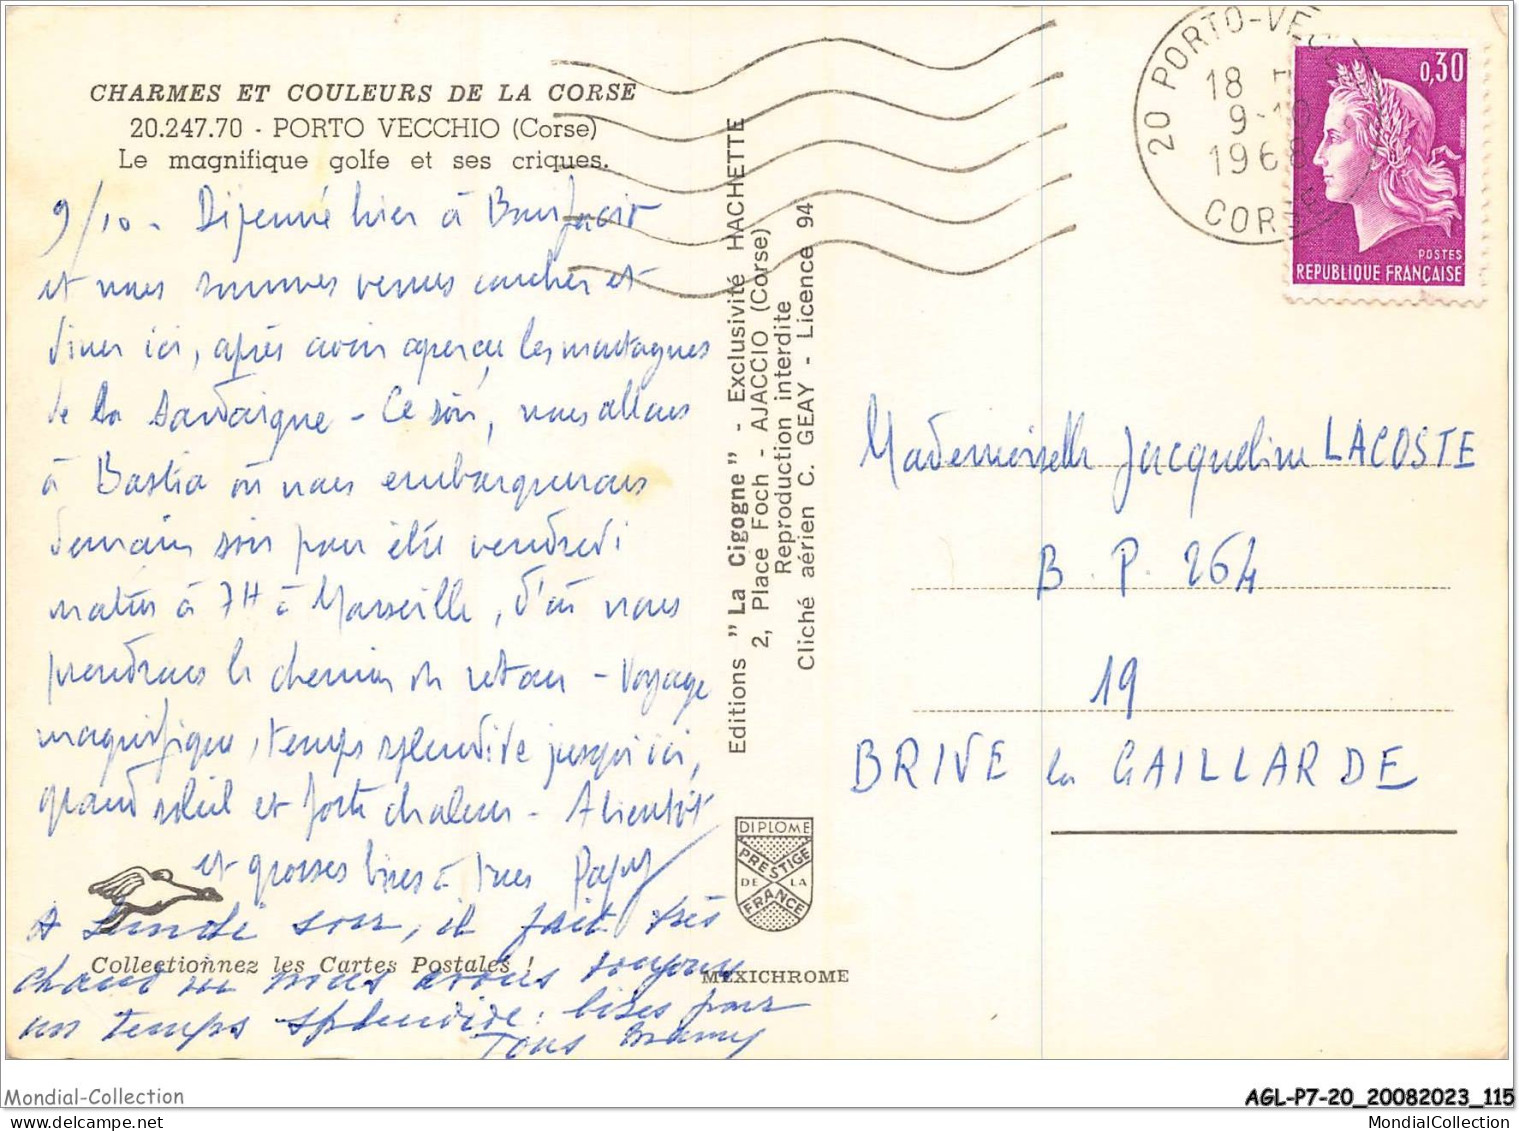 CHARMES ET COULEURS DE LA CORSE
20.247.70 - PORTO VECCHIO (Corse)
Le magnifique golfe et ses criques.
9/10 - Déjeuné hier à Bonifacio
et nous sommes venus coucher et
diner ici, après avoir aperçu les montagnes
de la Sardaigne - Ce soir, nous allons
à Bastia où nous embarquerons
demain soir pour être vendredi
matin à 7H à Marseille, d'où nous
prendrons le chemin du retour - Voyage
magnifique, temps splendide jusqu'ici,
grand soleil et forte chaleur - A bientôt
et grosses bises à tous Papy
A lundi soir, il fait très
chaud nous avons toujours
un temps splendide : bises pour
Tous Mamy
Collectionnez les Cartes Postales !
Editions "La Cigogne" - Exclusivité HACHETTE
2, Place Foch - AJACCIO (Corse)
Reproduction interdite
Cliché aérien C. GEAY - Licence 94
DIPLOME
PRESTIGE
DE LA
FRANCE
MEXICHROME
20 PORTO-VEC
18
9-10
1968
CORSE
0,30
POSTES
REPUBLIQUE FRANÇAISE
Mademoiselle Jacqueline LACOSTE
B.P. 264
19
BRIVE la GAILLARDE
Mondial-Collection
AGL-P7-20_20082023_115
MondialCollection